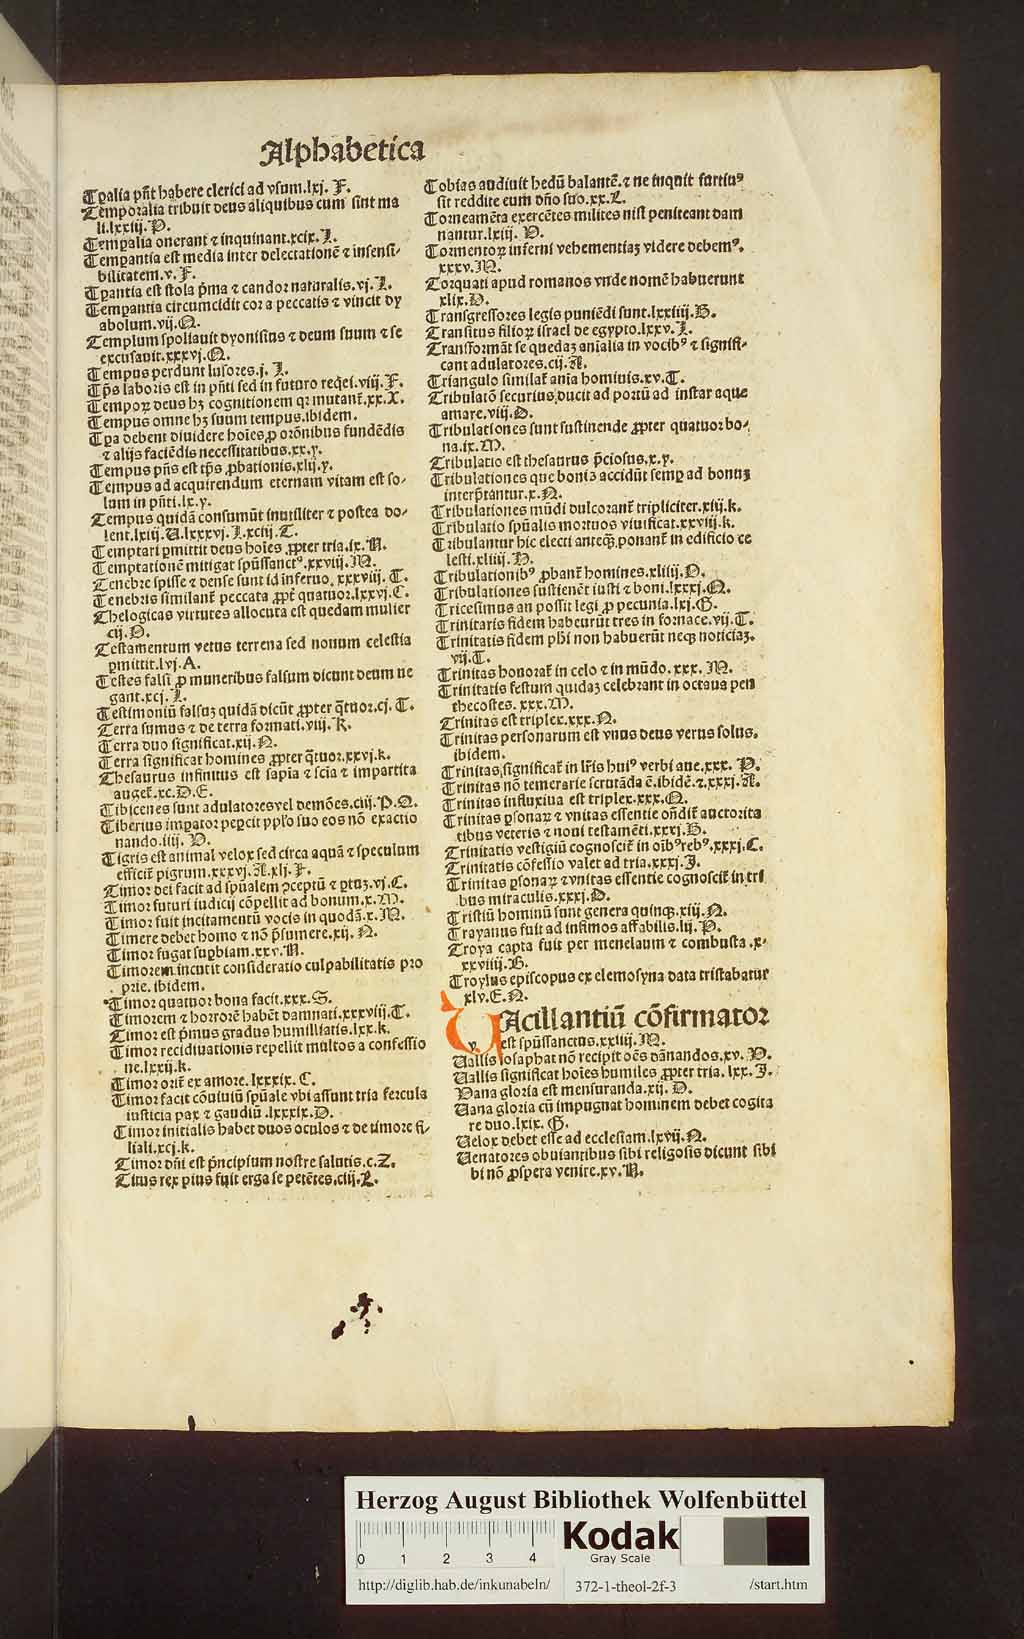 Alphabetica
Tꝑalia pn̄t habere clerici ad vsum.lxj. F.
Temporalia tribuit deus aliquibus cum sint ma
li.lxxiij.P.
Temꝑalia onerant ⁊ inquinant.xcix.I.
Temꝑantia est media inter delectationē ⁊ insensi-
bilitatem.v.F.
Tꝑantia est stola p̄ma ⁊ candor naturalis.vj.I.
Tempantia circumcidit cor a peccatis ⁊ vincit dy
abolum.vij.Q.
Templum spoliauit dyonisius ⁊ deum suum ⁊ se
excusauit.xxxvj.Q.
Tempus perdunt lusores.j. I.
Tp̄s laboris est in pn̄ti sed in futuro reqei.viij.F.
Tempoꝝ deus hꝫ cognitionem qꝛ mutant̄.xx.X.
Tempus omne hꝫ suum tempus.ibidem.
Tꝑa debent diuidere hoīes ꝓ orōnibus fundēdis
⁊ alijs faciēdis necessitatibus.xx.y.
Tempus pn̄s est tp̄s ꝓbationis.xlij.y.
Tempus ad acquirendum eternam vitam est so-
lum in pn̄ti.lx.y.
Tempus quidā consumūt inutiliter ⁊ postea do-
lent.lxiij.U.lxxxvj.I.xciij.T.
Temptari ꝑmittit deus hoīes ꝓpter tria.ix.N.
Temptationē mitigat spūssanctꝰ.xxviij.M.
Tenebre spisse ⁊ dense sunt id inferno.xxxviij.T.
Tenebris similant̄ peccata ꝓpt̄ quatuor.lxxvj.C.
Thelogicas virtutes allocuta est quedam mulier
cij.D.
Testamentum vetus terrena sed nouum celestia
ꝑmittit.lvj.A.
Testes falsi ꝓ muneribus falsum dicunt deum ne
gant.xcj.I.
Testimoniū falsuꝫ quidā dicūt ꝓpter q̄tuor.cj.T.
Terra sumus ⁊ de terra formati.viij.K.
Terra duo significat.xij.N.
Terra significat homines ꝓpter q̄tuor.xxvj.k.
Thesaurus infinitus est sapīa ⁊ scīa ⁊ impartita
auget̄.xc.D.E.
Tibicenes sunt adulatoresvel demōes.ciij.P.Q.
Tiberius imꝑator peꝑcit pplo suo eos nō exactio
nando.iiij. D.
Tigris est animal velox sed circa aquā ⁊ speculum
efficit̄ pigrum.xxxvj.A.xlj.F.
Timor dei facit ad spūalem ꝑceptū ⁊ ꝑtuꝫ.vj.C.
Timor futuri iudicij cōpellit ad bonum.x.M.
Timor fuit incitamentū vocis in quodā.x.M.
Timere debet homo ⁊ nō p̄sumere.xij. N.
Timor fugat suꝑbiam.xxv.N.
Timorem incutit consideratio culpabilitatis pro
prie.ibidem.
Timor quatuor bona facit.xxx.S.
Timorem ⁊ horrorē habēt damnati.xxxviij.T.
Timor est p̄mus gradus humilitatis.lxx.k.
Timor recidiuationis repellit multos a confessio
ne.lxxij.k.
Timor orit̄ ex amore.lxxxix.C.
Timor facit cōuiuiū spūale vbi assunt tria fercula
iusticia pax ⁊ gaudiū.lxxxix.D.
Timor initialis habet duos oculos ⁊ de timore fi-
liali.xcj.k.
Timor dn̄i est p̄ncipium nostre salutis.c.Z.
Titus rex pius fuit erga se petētes.ciij.L.
Tobias audiuit hedū balantē.⁊ ne inquit furtiuꝰ
sit reddite eum dn̄o suo.xx.L.
Torneamēta exercētes milites nisi peniteant dam
nantur.lxiij. D.
Tormentoꝝ inferni vehementiaꝫ videre debemꝰ.
xxxv.M.
Torquati apud romanos vnde nomē habuerunt
xlix.D.
Transgressores legis puniēdi sunt.lxxiiij.B.
Transitus filioꝝ israel de egypto.lxxv.I.
Transformāt se quedaꝫ aīalia in vocibꝰ ⁊ signifi-
cant adulatores.cij.A.
Triangulo similat̄ anīa hominis.xv.T.
Tribulatō securius ducit ad portū ad instar aque
amare.viij.D.
Tribulationes sunt sustinende ꝓpter quatuor bo-
na.ix.M.
Tribulatio est thesaurus p̄ciosus.x.y.
Tribulationes que bonis accidūt semꝑ ad bonuꝫ
interp̄tantur.x.N.
Tribulationes mūdi dulcorant̄ tripliciter.xiij.k.
Tribulatio spūalis mortuos viuificat.xxviij.k.
Tribulantur hic electi anteqꝫ ponant̄ in edificio ce
lesti.xliiij.D.
Tribulationibꝰ ꝓbant̄ homines.xliiij.D.
Tribulationes sustienēt iusti ⁊ boni.lxxxj.Q.
Tricesimus an possit legi ꝓ pecunia.lxj.G.
Trinitaris fidem habeurūt tres in fornace.vij.T.
Trinitatis fidem phi non habuerūt neqꝫ noticiaꝫ.
vij.T.
Trinitas honorat̄ in celo ⁊ in mūdo.xxx. M.
Trinitatis festum quidaꝫ celebrant in octaua pen
thecostes. xxx.M.
Trinitas est triplex.xxx.N.
Trinitas personarum est vnus deus verus solus.
ibidem.
Trinitas significat̄ in lr̄is huiꝰ verbi aue.xxx. P.
Trinitas nō temerarie scrutāda ē.ibidē.⁊.xxxj.A.
Trinitas influxiua est triplex.xxx.Q.
Trinitas ꝑsonaꝝ ⁊ vnitas essentie ondit̄ auctorita
tibus veteris ⁊ noui testamēti.xxxj.B.
Trinitatis vestigiū cognoscit̄ in oībꝰrebꝰ.xxxj.C.
Trinitatis cōfessio valet ad tria.xxxj.I.
Trinitas ꝑsonaꝝ ⁊vnitas essentie cognoscit̄ in tri
bus miraculis.xxxj.D.
Tristiū hominū sunt genera quinqꝫ.xiij.N.
Trayanus fuit ad infimos affabilis.lij.P.
Troya capta fuit per menelaum ⁊ combusta.x-
xxviiij.B.
Troylus episcopus ex elemosyna data tristabatur
xlv.E.N.
VAcillantiū cōfirmator
est spūssanctus.xxiiij.M.
Uallis iosaphat nō recipit oēs dānandos.xv. D.
Uallis significat hoīes humiles ꝓpter tria.lxx.I.
Vana gloria est mensuranda.xij. D.
Uana gloria cū impugnat hominem debet cogita
re duo.lxix. G.
Uelox debet esse ad ecclesiam.lxvij.N.
Uenatores obuiantibus sibi religosis dicunt sibi
bi nō ꝓspera venire.xv.N.
Herzog August Bibliothek Wolfenbüttel
0 1 2 3 4
Kodak
Gray Scale
http://diglib.hab.de/inkunabeln/ 372-1-theol-2f-3 /start.htm